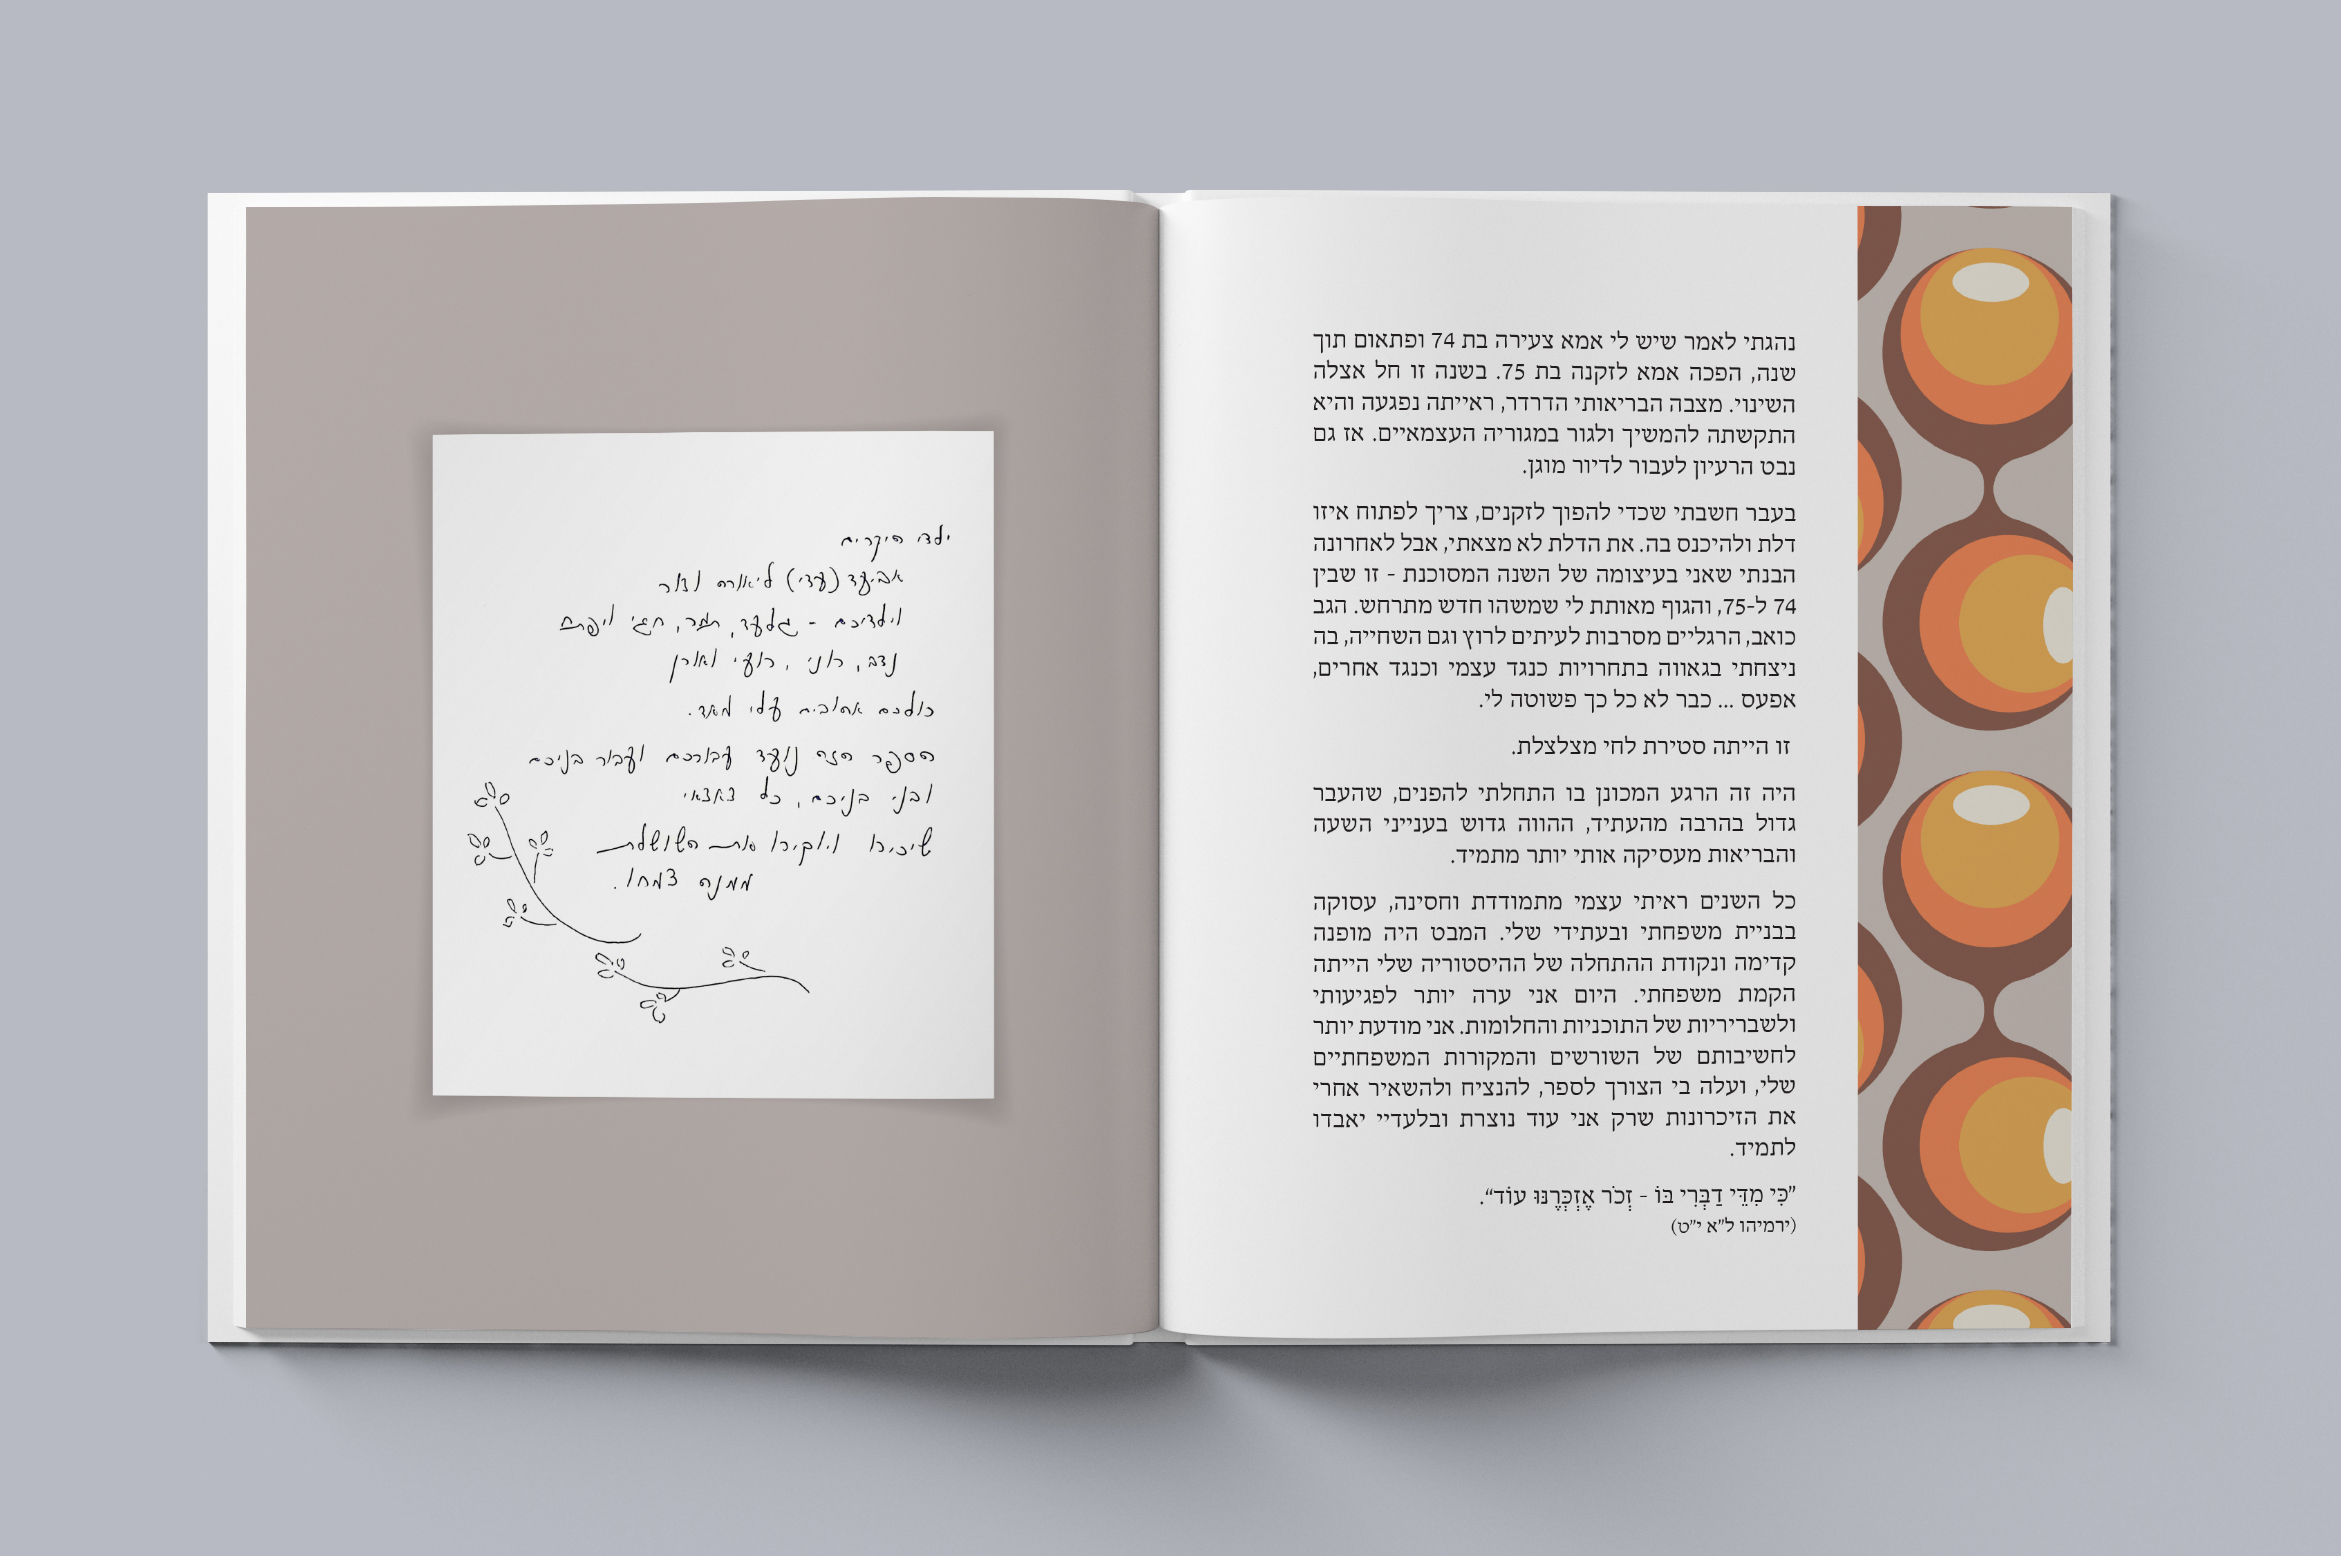 נהגתי לאמר שיש לי אמא צעירה בת 74 ופתאום תוך
שנה, הפכה אמא לזקנה בת 75. בשנה זו חל אצלה
השינוי. מצבה הבריאותי הדרדר, ראייתה נפגעה והיא
התקשתה להמשיך ולגור במגוריה העצמאיים. אז גם
נבט הרעיון לעבור לדיור מוגן.
בעבר חשבתי שכדי להפוך לזקנים, צריך לפתוח איזו
דלת ולהיכנס בה. את הדלת לא מצאתי, אבל לאחרונה
הבנתי שאני בעיצומה של השנה המסוכנת - זו שבין
74 ל-75, והגוף מאותת לי שמשהו חדש מתרחש. הגב
כואב, הרגליים מסרבות לעיתים לרוץ וגם השחייה, בה
ניצחתי בגאווה בתחרויות כנגד עצמי וכנגד אחרים,
אפעס ... כבר לא כל כך פשוטה לי.
זו הייתה סטירת לחי מצלצלת.
היה זה הרגע המכונן בו התחלתי להפנים, שהעבר
גדול בהרבה מהעתיד, ההווה גדוש בענייני השעה
והבריאות מעסיקה אותי יותר מתמיד.
כל השנים ראיתי עצמי מתמודדת וחסינה, עסוקה
בבניית משפחתי ובעתידי שלי. המבט היה מופנה
קדימה ונקודת ההתחלה של ההיסטוריה שלי הייתה
הקמת משפחתי. היום אני ערה יותר לפגיעותי
ולשבריריות של התוכניות והחלומות. אני מודעת יותר
לחשיבותם של השורשים והמקורות המשפחתיים
שלי, ועלה בי הצורך לספר, להנציח ולהשאיר אחרי
את הזיכרונות שרק אני עוד נוצרת ובלעדיי יאבדו
לתמיד.
"כִּי מִדֵּי דַבְּרִי בּוֹ - זָכֹר אֶזְכְּרֶנּוּ עוֹד".
(ירמיהו ל"א י"ט)
ילדי היקרים
אביעד (עדי) ליאורה וצור
וילדיכם - גלעד, תמר, חגי ויפתח
נדב, רוני, רועי ואורן
כולכם אהובים עלי מאד.
הספר הזה נועד עבורכם ועבור בניכם
ובני בניכם, כל צאצאי
שיכירו ויוקירו את השושלת
ממנה צמחו.